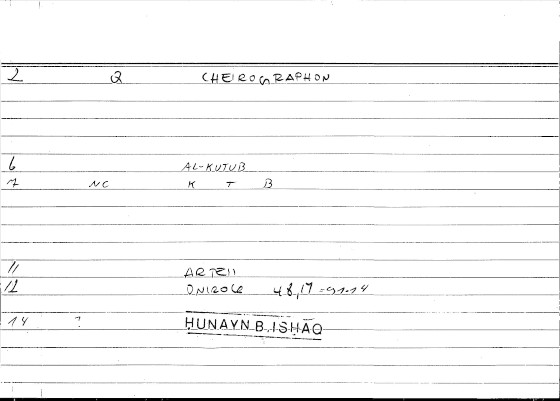 2 Q CHEIROGRAPHON
6 AL-KUTUB
7 NC K T B
11 ARTEM
12 ONIROC 48,17 = 91.14
14 ? ḤUNAYN B. ISḤĀQ